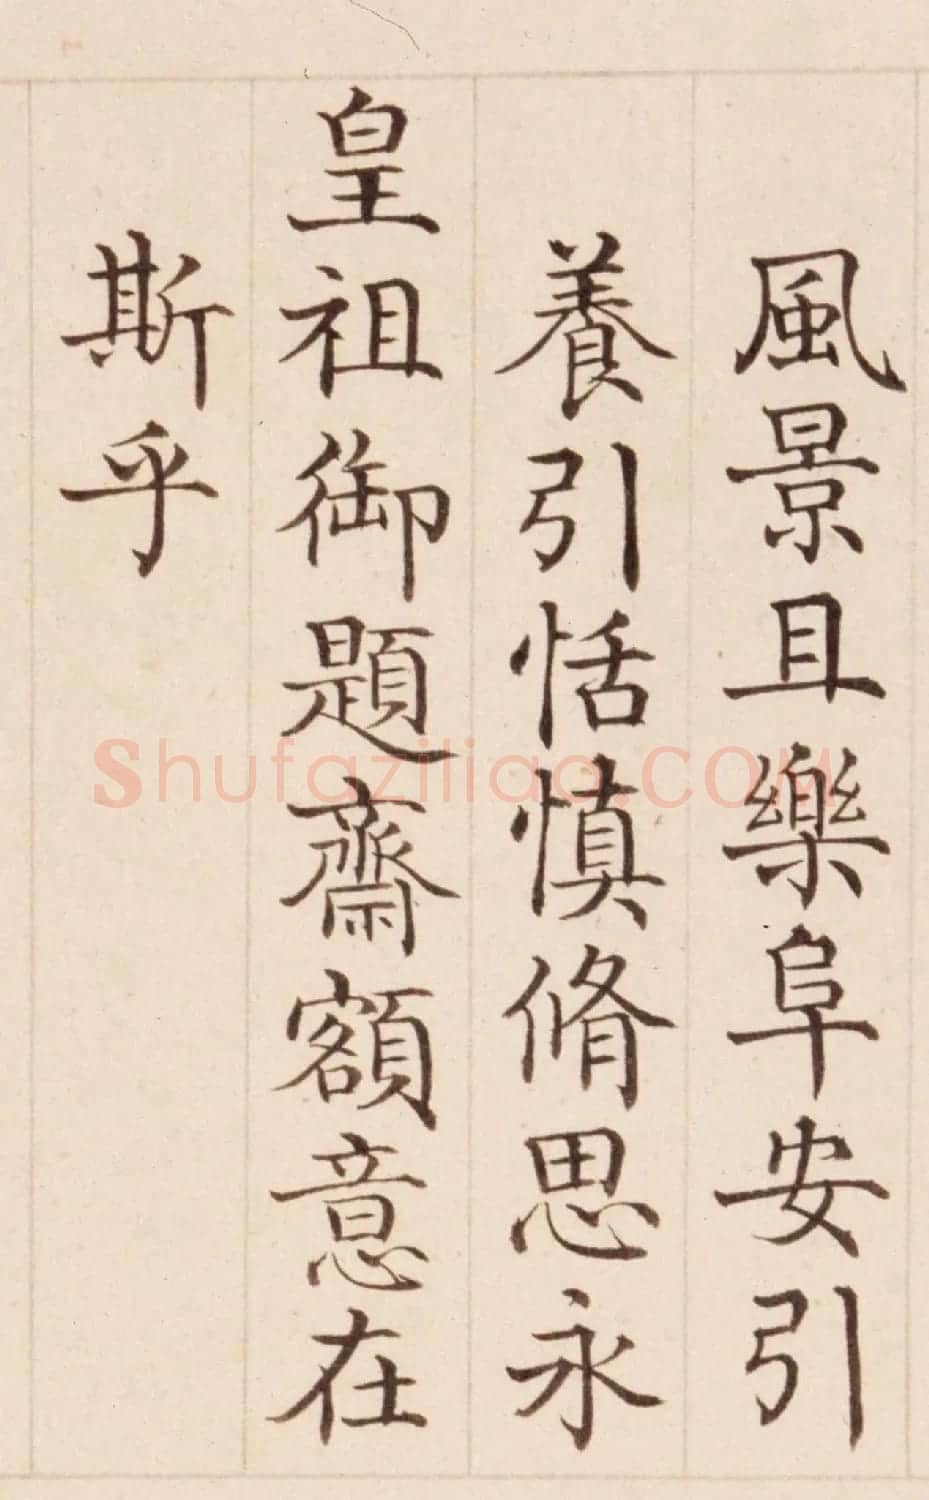 風景且樂阜安引
養引恬慎脩思永
皇祖御題齋額意在
斯乎
Shufaziliao.COM